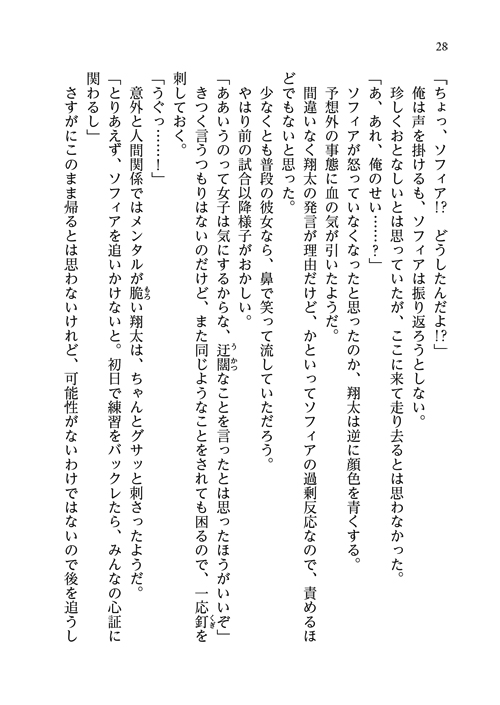 28
「ちょっ、ソフィア!?　どうしたんだよ!?」
俺は声を掛けるも、ソフィアは振り返ろうとしない。
珍しくおとなしいとは思っていたが、ここに来て走り去るとは思わなかった。
「あ、あれ、俺のせい……？」
ソフィアが怒っていなくなったと思ったのか、翔太は逆に顔色を青くする。
予想外の事態に血の気が引いたようだ。
間違いなく翔太の発言が理由だけど、かといってソフィアの過剰反応なので、責めるほ
どでもないと思った。
少なくとも普段の彼女なら、鼻で笑って流していただろう。
やはり前の試合以降様子がおかしい。
「ああいうのって女子は気にするからな、迂闊なことを言ったとは思ったほうがいいぞ」
きつく言うつもりはないのだけど、また同じようなことをされても困るので、一応釘を
刺しておく。
「うぐっ……！」
意外と人間関係ではメンタルが脆い翔太は、ちゃんとグサッと刺さったようだ。
「とりあえず、ソフィアを追いかけないと。初日で練習をバックレたら、みんなの心証に
関わるし」
さすがにこのまま帰るとは思わないけれど、可能性がないわけではないので後を追うし